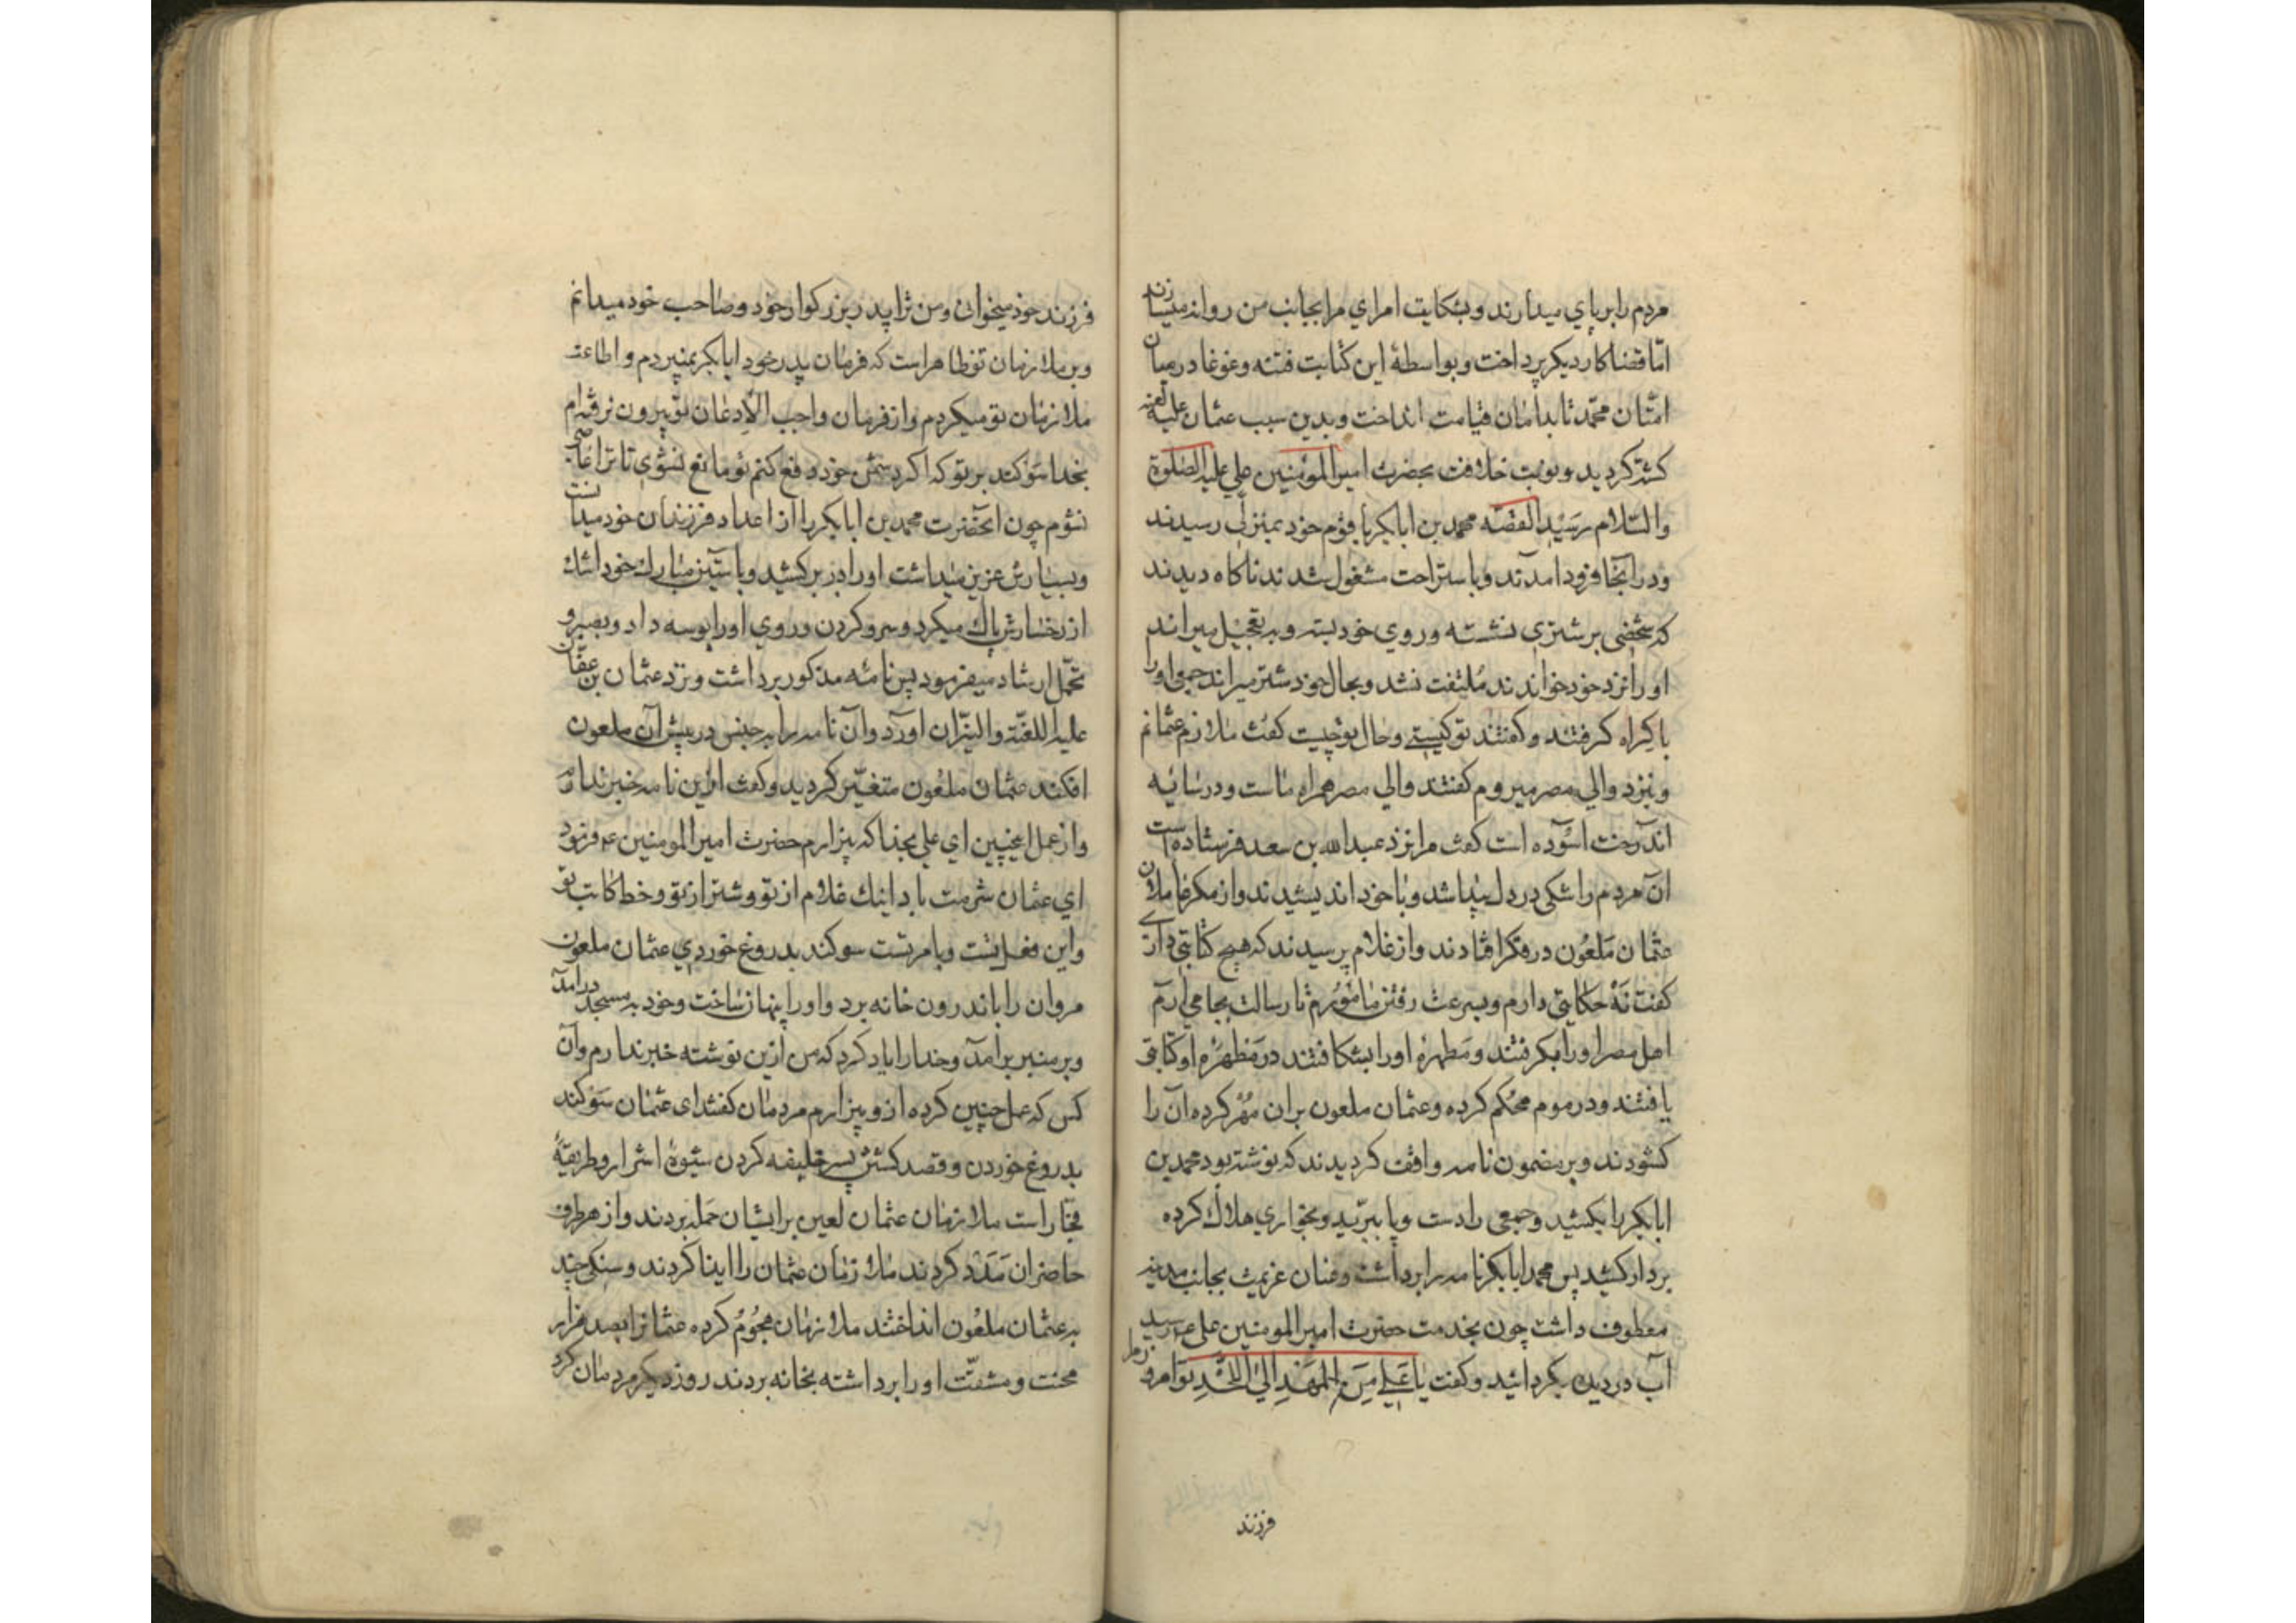 مردم را بر پای میدارند و بشکایت امرای مرا بجانب من روانه میسازند
امّا قضا کار دیکر پرداخت و بواسطهٔ این کتابت فتنه و غوغا در میان
امتان محمّد تا بدامان قیامت انداخت و بدین سبب عثمان علیه لعنه
کشته کردید و نوبت خلافت بحضرت امیرالمؤمنین علی علیه الصلوة
والسّلام رسید القصّه محمد بن ابابکر با قوم خود بمنزلی رسیدند
و در آنجا فرود آمدند و باستراحت مشغول شدند ناکاه دیدند
که شخصی بر شتری نشسته و روی خود بسته و به تعجیل میراند
او را نزد خود خواندند مُلتفت نشد و بحال خود شتر میراند جمعی او را
باکراه کرفتند و کفتند تو کیستی و حال تو چیست کفت ملازم عثمانم
و بنزد والی مصر میروم کفتند والی مصر همراه ماست و در سایه
اندرخت اسوده است کفت مرا نزد عبدالله بن سعد فرستاده است
آن مردم را شکی در دل پیدا شد و با خود اندیشیدند و از مکر عاملان
عثمان مَلعُون در فکر افتادند و از غلام پرسیدند که هیچ کتابتی داری
کفت نَه حکایتی دارم و بسرعت رفتن مامُورم تا رسالت بجا می ارم
اهل مصر او را بکرفتند و مَطهرهٔ او را بشکافتند در مَطهرهٔ او کتابتی
یافتند و در موم محُکم کرده و عثمان ملعون بران مُهر کرده آن را
کشودند و بر مضمون نامه واقف کردیدند که نوشته بود محمد بن
ابابکر را بکشید و جمعی را دست و پا ببرّید و بخواری هلاک کرده
بر دار کشید پس محمد ابابکر نامه را برداشت و عنان عزیمت بجانب مدینه
معطوف داشت چون بخدمت حضرت امیرالمومنین علی ع رسید
آب در دیده بکردانید و کفت یا عَلی مِنَ المَهدِ اِلیَ اللَّحدِ تو امرو
فرزند
فرزند خود میخوانی و من ترا پدر بزرکوار خود و صاحب خود میدانم
و بر ملازمان تو ظاهر است که فرمان پدر خود ابابکر نمیبردم و اطاعت
ملازمان تو میکردم و از فرمان واجب الاذعان تو بیرون نرفته ام
بخدا سوکند بر تو که اکر دشمن خود دفع کنم تو مانع نشوی تا ترا عاصی
نشوم چون انحضرت محمد بن ابابکر را از اعداد فرزندان خود میدانست
و بسیارش عزیز میداشت او را در بر کشید و با ستین مبارک خود اشک
از رخسارش پاک میکرد و سر و کردن و روی او را بوسه داد و بصبر و
تحمّل ارشاد میفرمود پس نامه مذکور برداشت و نزد عثمان بن عفّان
علیه اللعنّة والنیّران اورد و آن نامه را به در پیش آن ملعون
افکند عثمان ملعُون متغیّر کردید و کفت ازین نامه خبر ندارم
و از عمل اینچنین ای علی بخدا که بیزارم حضرت امیرالمومنین ع فرمود
ای عثمان شرمت باد اینک غلام از تو و شتر از تو و خط کاتب تو
و این فعل تست و بامر تست سوکند بدروغ خوردی عثمان ملعون
مروان را باندرون خانه برد و او را پنهان ساخت و خود به مسجد درآمد
و بر منبر برآمد و خدا را یاد کرد که من ازین نوشته خبر ندارم و آن
کس که عمل چنین کرده ازو بیزارم مردمان کفتند ای عثمان سَوکند
بدروغ خوردن و قصد کشتن پسر خلیفه کردن شیوهٔ اشرار و طریقهٔ
فجّار است ملازمان عثمان لعین بر ایشان حَمله بردند و از هر طرف
حاضران مَدَد کردند ملازمان عثمان را ایذا کردند و سنکی چند
به عثمان ملعُون انداختند ملازمان هجُومُ کرده عثمان را بصد هزار
محنت و مشقّت او را برداشته بخانه بردند روز دیکر مردمان کرد